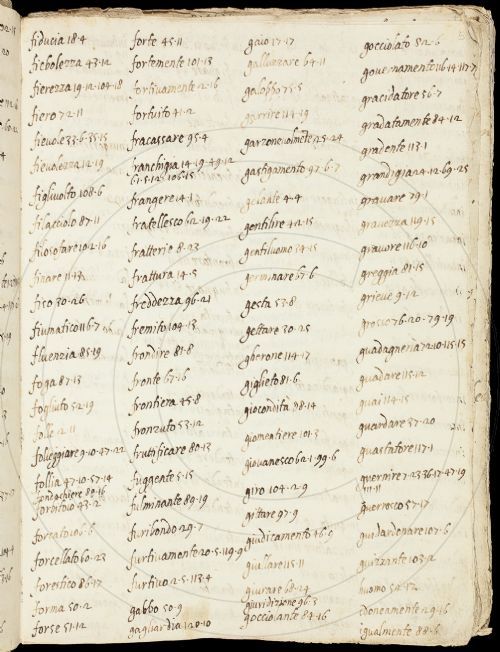 fiducia 18·4
fiebolezza 43·12
fierezza 19·12·104·18
fiero 72·11
fievole 33·6·35·15
fievolezza 12·19
figlivolto 108·6
filacciolo 87·11
filosofare 10·2·16
finare
fiso 30·26
fiumatico 116·7
fluenzia 85·19
foga 87·13
fogliuto 52·19
folle 2·11
folleggiare 9·10·47·22
follia 47·10·57·14
fondachiere 89·16
forbitoio 43·2
forcato 106·6
forcellato 60·23
forestico 86·17
forma 50·2
forse 51·12
forte 45·11
fortemente 101·13
fortivamente 2·16
fortuito 41·2
fracassare 95·4
franchigia 14·19·49·12
61·5·12·106·15
frangere 14·13
fratellesco 62·19·22
fratterie 8·23
frattura 14·5
freddezza 96·21
fremito 104·13
frondire 81·8
fronte 67·16
frontiera 45·8
fronzuto 53·12
fruttificare 80·13
fuggente 5·15
fulminante 89·19
furibondo 29·7
furtivamento 20·5·119·9
furtivo 2·5·113·4
gabbo 50·9
gagliardia 120·10
gaio 17·17
galluzzare 64·11
galoppo 75·5
garrire 114·19
garzonevolmente 25·24
gastigamento 97·6·7
gelante 4·4
gentilire 42·15
gentiluomo 34·15
germinare 67·6
gesta 53·8
gettare 30·25
gherone 114·17
giglieto 81·6
giocondita 98·14
giomentiere 101·3
giovanesco 62·1·99·6
giro 104·2·9
gittare 97·9
giudicamento 46·9
giullare 115·11
giurare 68·24
giuridizione 96·3
gocciolante 84·16
gocciolato 52·6
governamento 116·14·117·7
gracidatore 56·7
gradatamente 84·12
gradente 113·1
grandigia 24·12·69·25
gravare 79·1
gravezza 119·15
gravore 116·10
greggia 81·15
grieve 9·12
grosso 76·20·79·19
guadagneria 72·10·115·15
guadare 115·12
guai 114·15
guardare 37·20
guastatore 117·1
guernire 7·23·36·17·47·19
111·11
guerrosco 57·17
guidardonare 107·6
guizzante 103·2
huomo
idoneamente 29·16
igualmente 88·6